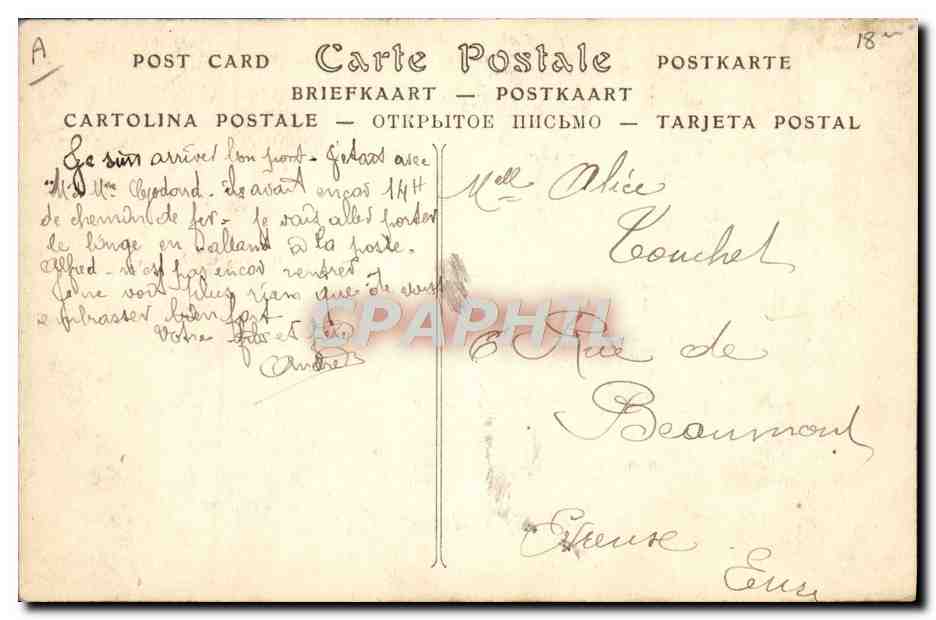 A
18
POST CARD Carte Postale POSTKARTE
BRIEFKAART — POSTKAART
CARTOLINA POSTALE — ОТКРЫТОЕ ПИСЬМО — TARJETA POSTAL
Je suis arriver bon port - J'etais avec
M. Mme Godard - ils avait encor 14H
de chemin de fer - Je vais aller porter
le linge en allant à la poste -
Alfred - n'est pas encor rentrer
Je ne vois plus rien que de vous
embrasser bien fort
Votre fils et frère
André
Melle Alice
Touchet
6 Rue de
Beaumont
Evreux
Eure
CPAPHIL